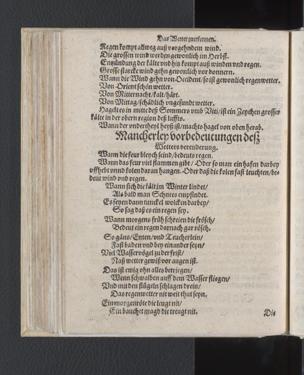 Das Wetter zuerkennen.
Regen kompt allweg auß vorgehndem wind.
Die grossen wind werden gewonlich im Herbst.
Entzündung der kälte und hin kompt auß winden und regen.
Grosse starcke wind gehn gewonlich vor donnern.
Wann die Wind gehn von Occident/ so ist gewonlich regenwetter.
Von Orient schön wetter.
Von Mitternacht/ kalt/ hart.
Von Mittag/ schädlich ungesundt wetter.
Hagelts in mitte deß Sommers und ist/ ist ein Zeychen grosser
kälte in der obern region deß luffts.
Wann der undertheyl heyß ist/ machts hagel von oben herab.
Mancherley vorbedeutungen deß
Wetters verenderung.
Wann die feur bleych seind/ bedeuts regen.
Wann das feur viel flammen gibt/ Oder so man ein hafen darbey
uffhebt unnd kolen daran hangen. Oder daß die kolen fast leuchten/ be-
deut wind und regen.
Wann sich die kält im Winter lindet/
Als bald man Schnees empfindet.
Es seyen dann tunckel wolcken darbey/
So sag daß es ein regen sey.
Wann morgens früh schreien die frösch/
Bedeut ein regen darnach gar rösch.
So gäns/ Enten/ und Teucherlein/
Fast baden und bey einander seyn/
Und Wasservögel zu der frist/
Naß wetter gewiß vor augen ist.
Das ist ewig ohn alles betriegen/
Wenn schwalben auff dem Wasser fliegen/
Und mit den flügeln schlagen drein/
Das regenwetter nit weit thut seyn.
Ein morgenröte die leugt nit/
Ein bauchet magd die treugt nit.
Die